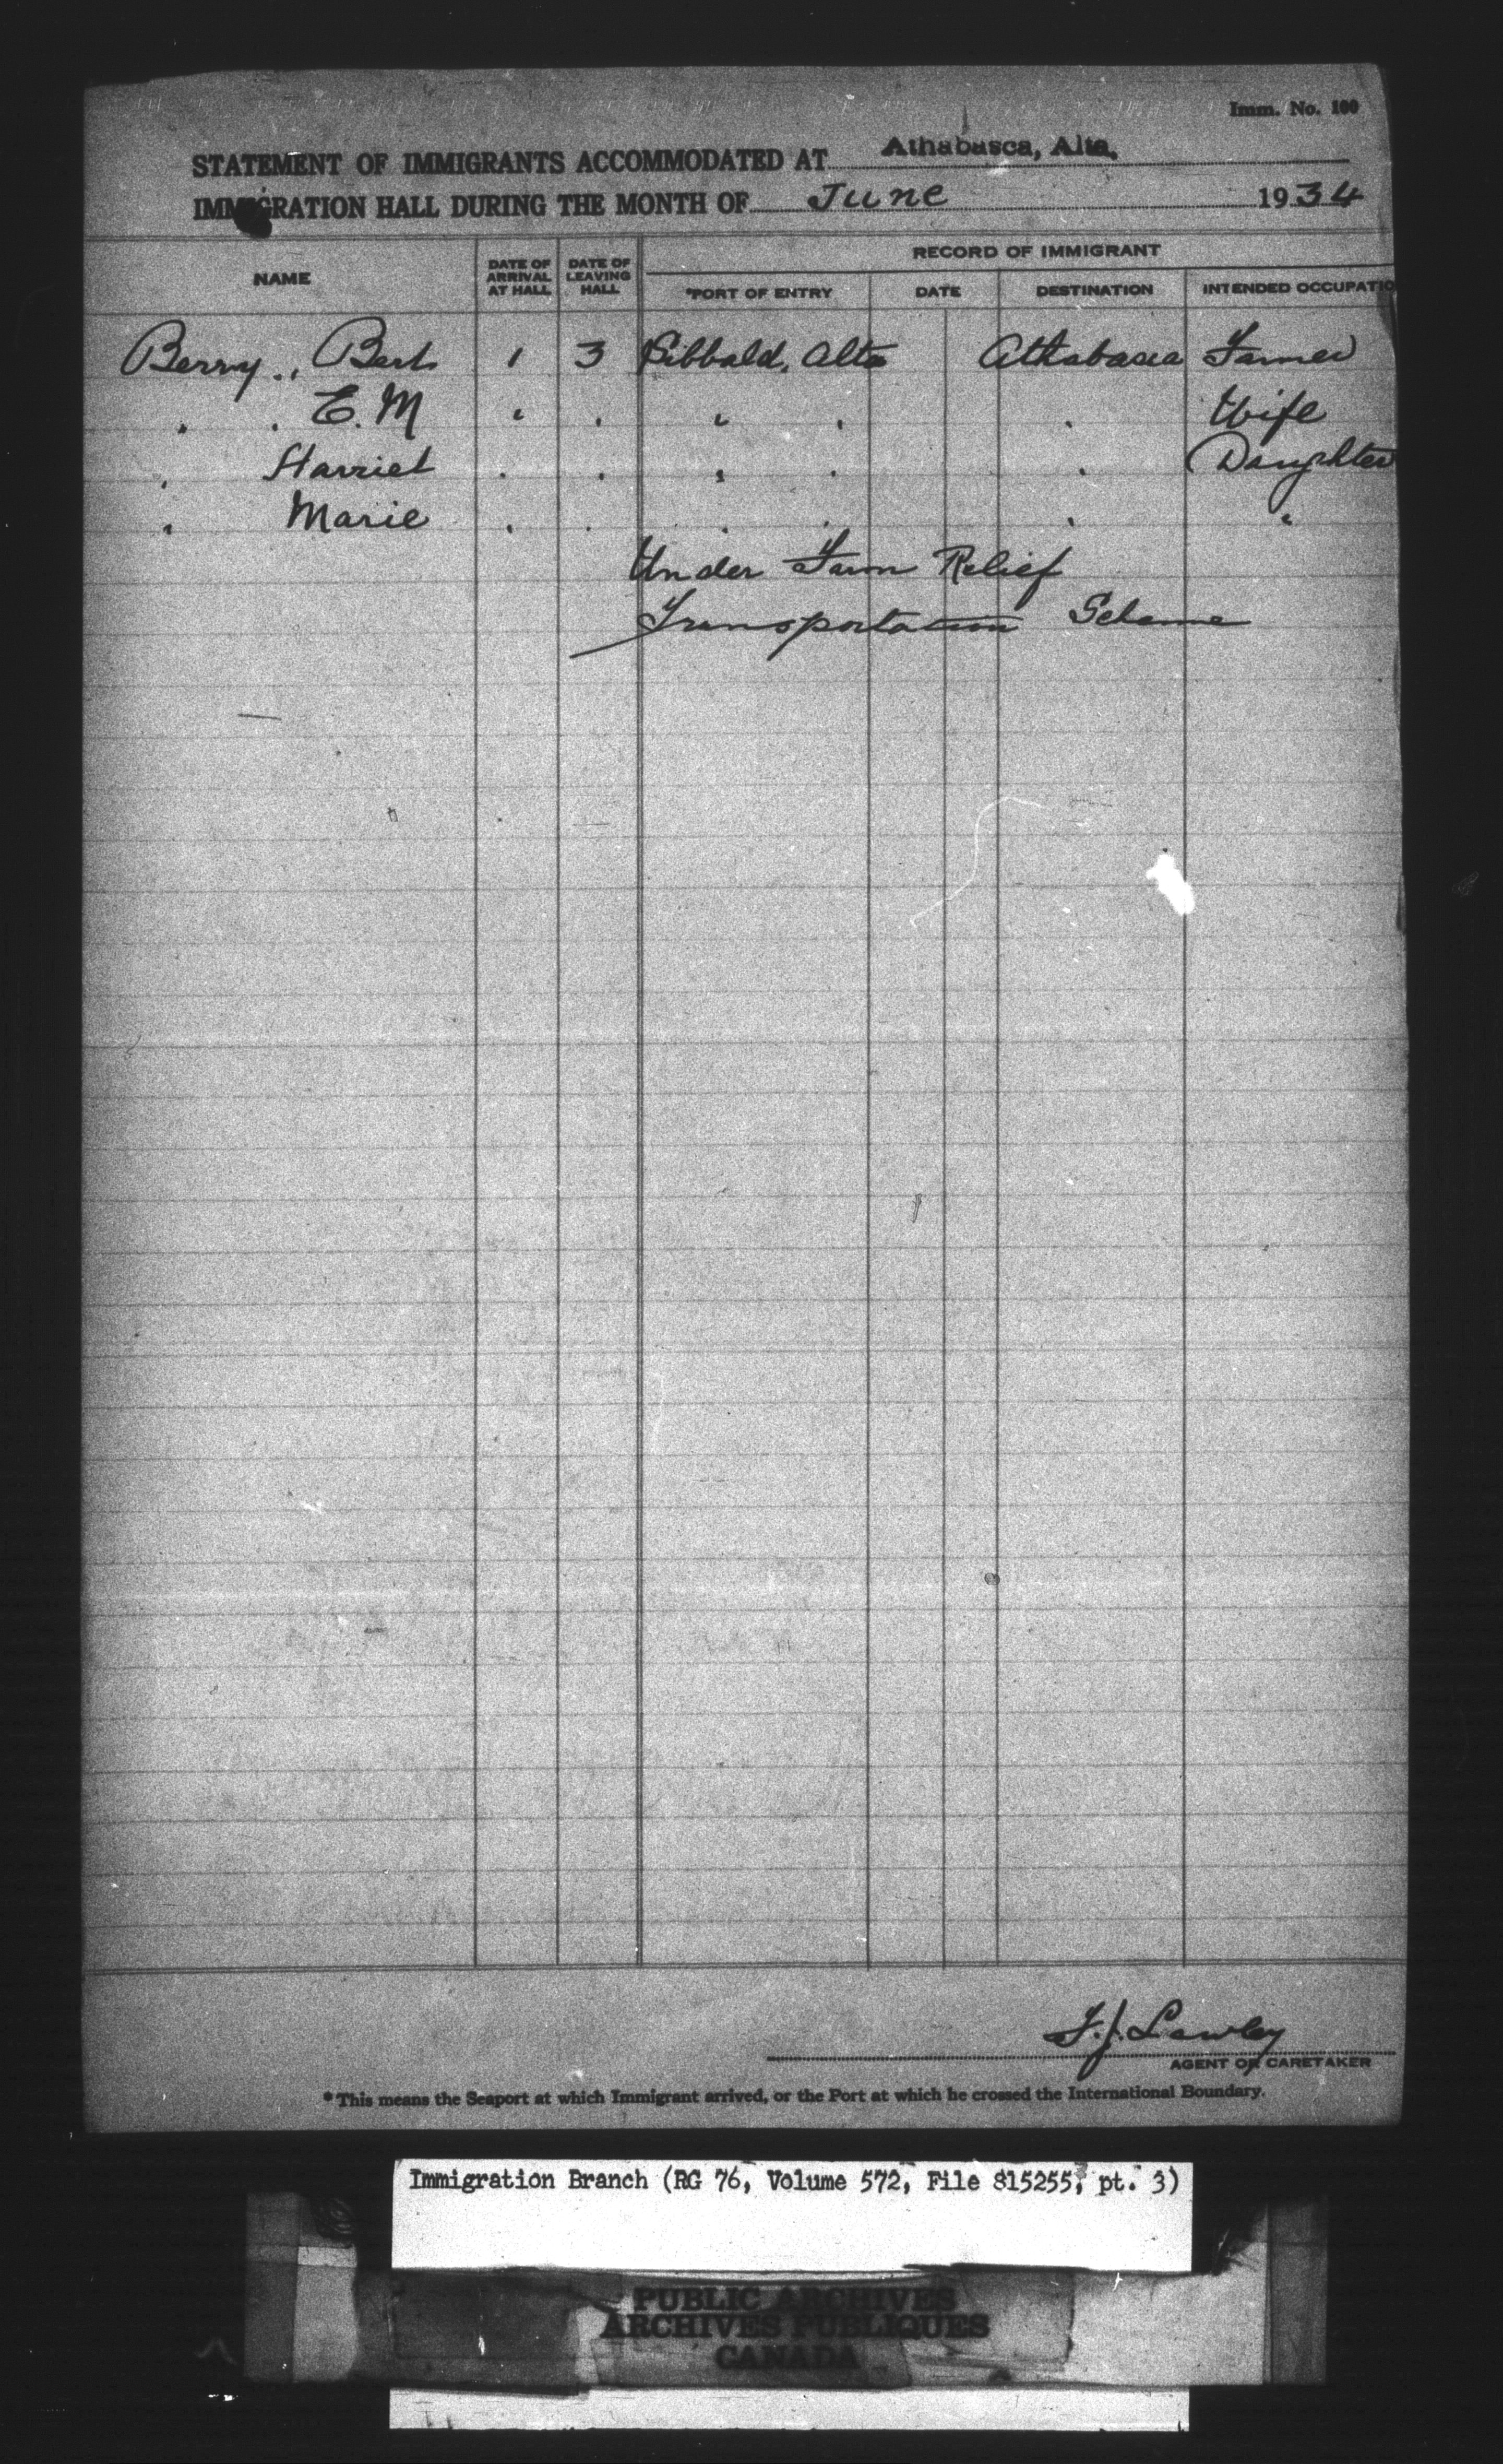 Imm. No. 100
STATEMENT OF IMMIGRANTS ACCOMMODATED AT Athabasca, Alta,
IMMIGRATION HALL DURING THE MONTH OF June 1934
RECORD OF IMMIGRANT
NAME DATE OF ARRIVAL AT HALL DATE OF LEAVING HALL *PORT OF ENTRY DATE DESTINATION INTENDED OCCUPATIO
Berry, Bert 1 3 Sibbald, Alta Athabasca Farmer
" " E.M " " " " " Wife
" Harriet " " " " " Daughter
" Marie " " " " " "
Under Farm Relief
Transportation Scheme
F.J. Lawley
AGENT OR CARETAKER
*This means the Seaport at which Immigrant arrived, or the Port at which he crossed the International Boundary.
Immigration Branch (RG 76, Volume 572, File 815255, pt. 3)
PUBLIC ARCHIVES
ARCHIVES PUBLIQUES
CANADA